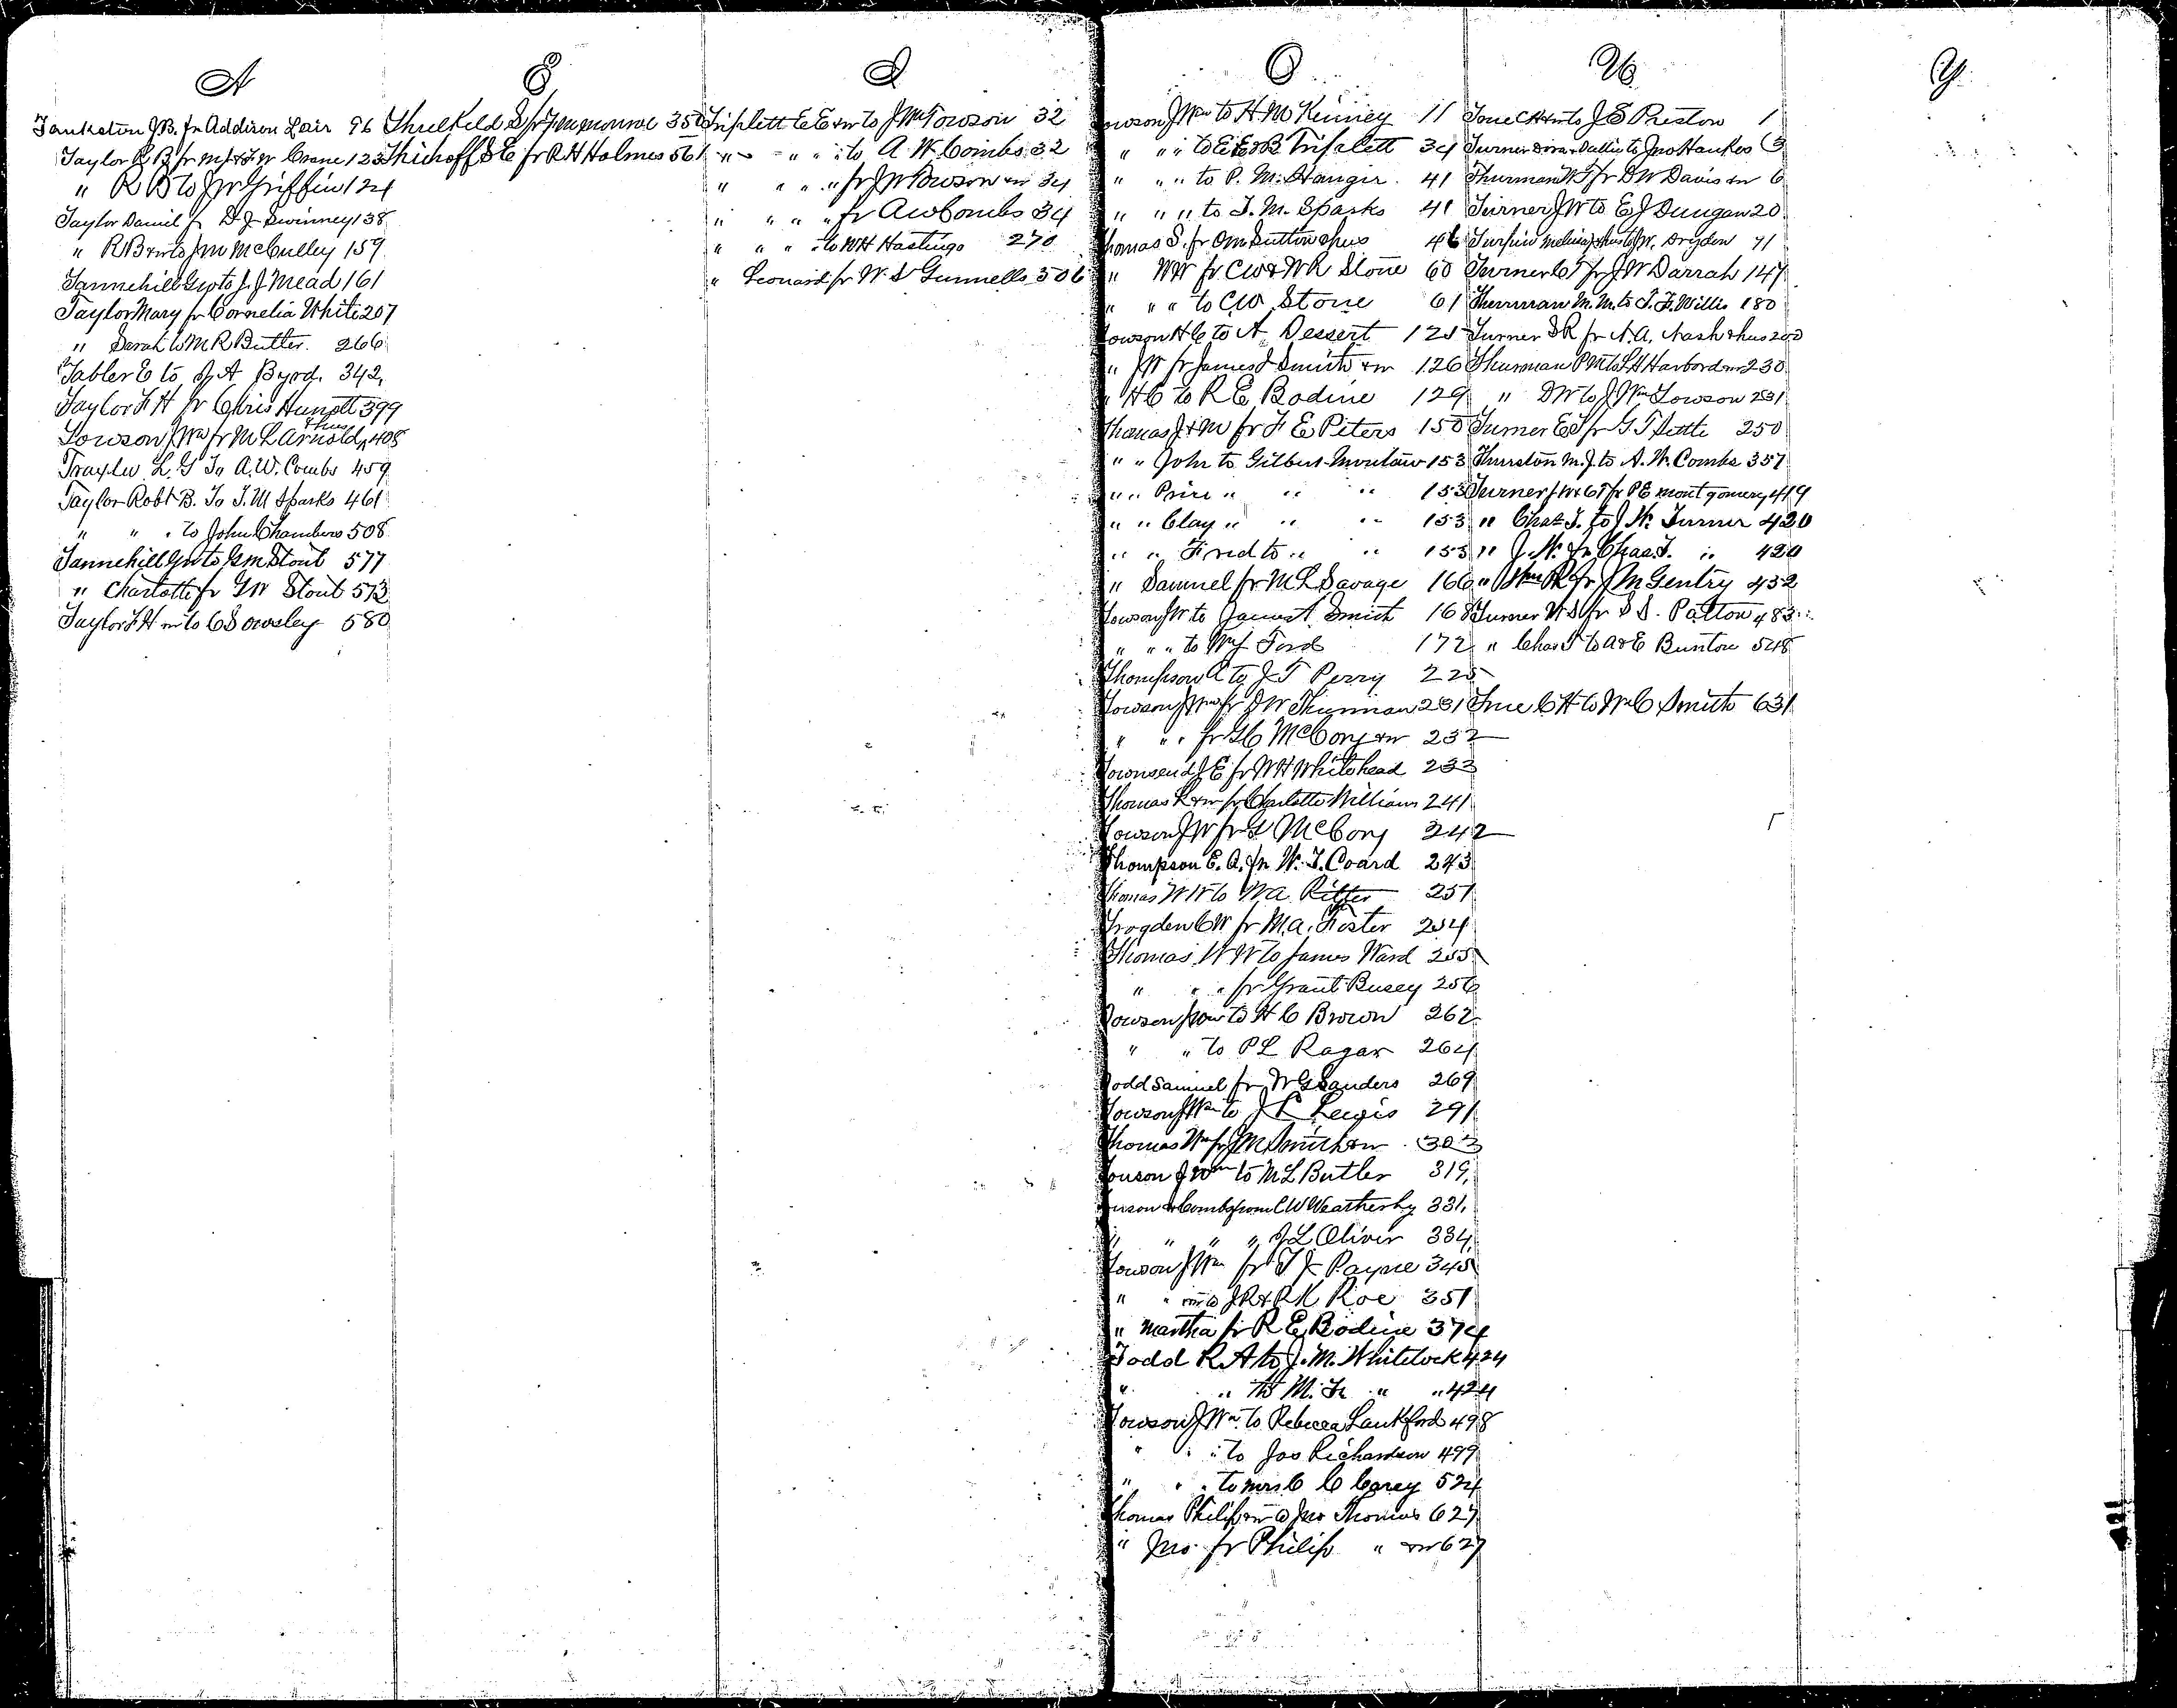 A
Tankston J.B. fr Addison Lair 96
Taylor R B fr M J & F W Crane 123
" R B to J W Griffin 124
Taylor Daniel fr D J Swinney 138
" R B & w to J W McCulley 159
Tannehill to J. J. Mead 161
Taylor Mary fr Cornelia White 207
" Sarah to M R Butler 266
Tabler E to J A Byrd. 342
Taylor F H fr Chris 399
Towson J Wm fr M L Arnold & hus 408
L. G To A. W. Combs 459
Taylor Robt B. To J. M Sparks 461
" " " to John Chambers 508
Tannehill to G M Stout 577
" Charlotte fr G W Stout 573
Taylor F H to C S Owsley 580
E
Threlkeld S fr J M Monroe 350
S E fr R H Holmes 561
I
Triplett E E & w to J Wm Towson 32
" " " to A. W. Combs 32
" " " " fr J W Towson & w 34
" " " " fr A W Combs 34
" " " to W H Hastings 270
" Leonard fr W S Gunnells 506
O
Towson J Wm to H M Kinney 11
" " " to E E & B Triplett 34
" " " to P. M. Stanger 41
" " " to J. M. Sparks 41
Thomas S. fr O M Sutton & hus 46
" W W fr C W & W R Stone 60
" " " to C W Stone 61
Towson H C to A Dessert 125
" J W fr James S Smith & w 126
" H C to R E Bodine 129
Thomas J & M fr F E Peters 150
" " John to Gilbert 153
" " Price " " " 153
" " Clay " " " 153
" " Fred to " " 153
" Samuel fr M L Savage 166
Towson J W to James A Smith 168
" " " to Wm J Ford 172
Thompson A to J T Perry 225
Towson J Wm fr D W Thurman 231
" " " fr G C McCory & w 232
Townsend J E fr W H Whitehead 233
Thomas R & w fr Charlotte Williams 241
Towson J W fr G McCory 242
Thompson E. A. fr W. T. Coard 243
Thomas W W to W A Ritter 251
Trogden C W fr M. A. Foster 254
Thomas W W to James Ward 255
" " " fr Grant Busey 256
Towson to H C Brown 262
" " to P L Ragar 264
Todd Samuel fr W G Sanders 269
Towson J Wm to J L Lewis 291
Thomas Wm fr J M Smith & w 303
Towson J Wm to M L Butler 319
Towson & Combs from C W Weatherby 331
" " " " J L Oliver 334
Towson J Wm fr T J Payne 345
" " J R & R K Roe 351
" Martha fr R E Bodine 374
Todd R. A to J. M. Whitelock 424
" " to M. F. " " 424
Towson J Wm to Rebecca Lankford 498
" " " to Jos Richardson 499
" " " to Mrs C C Carey 524
Thomas Philip & w to Jno Thomas 627
" Jno fr Philip " & w 627
U
True C H & w to J S Preston 1
Turner Dora & Dallis to Jno Hawkes 3
Thurman W T fr D W Davis & w 6
Turner J W to E J Dungan 20
Turpin Melvina & hus to J W. Dryden 71
Turner C T fr J W Darrah 147
Thurman M. M. to T. F. Willis 180
Turner S R fr N. A. Nash & hus 200
Thurman P M to L H Harbord & w 230
" D W to J Wm Towson 231
Turner E S fr G T Settle 250
Thurston M. J. to A. W. Combs 357
Turner J W & C T fr P E Montgomery 419
" Chas T. to J W. Turner 420
" J. W. fr Chas T. " 420
" Wm R fr J M Gentry 432
Turner W S fr S S. Patton 483
" Chas T to A & E Bunton 548
True C H to Wm C Smith 631
Y